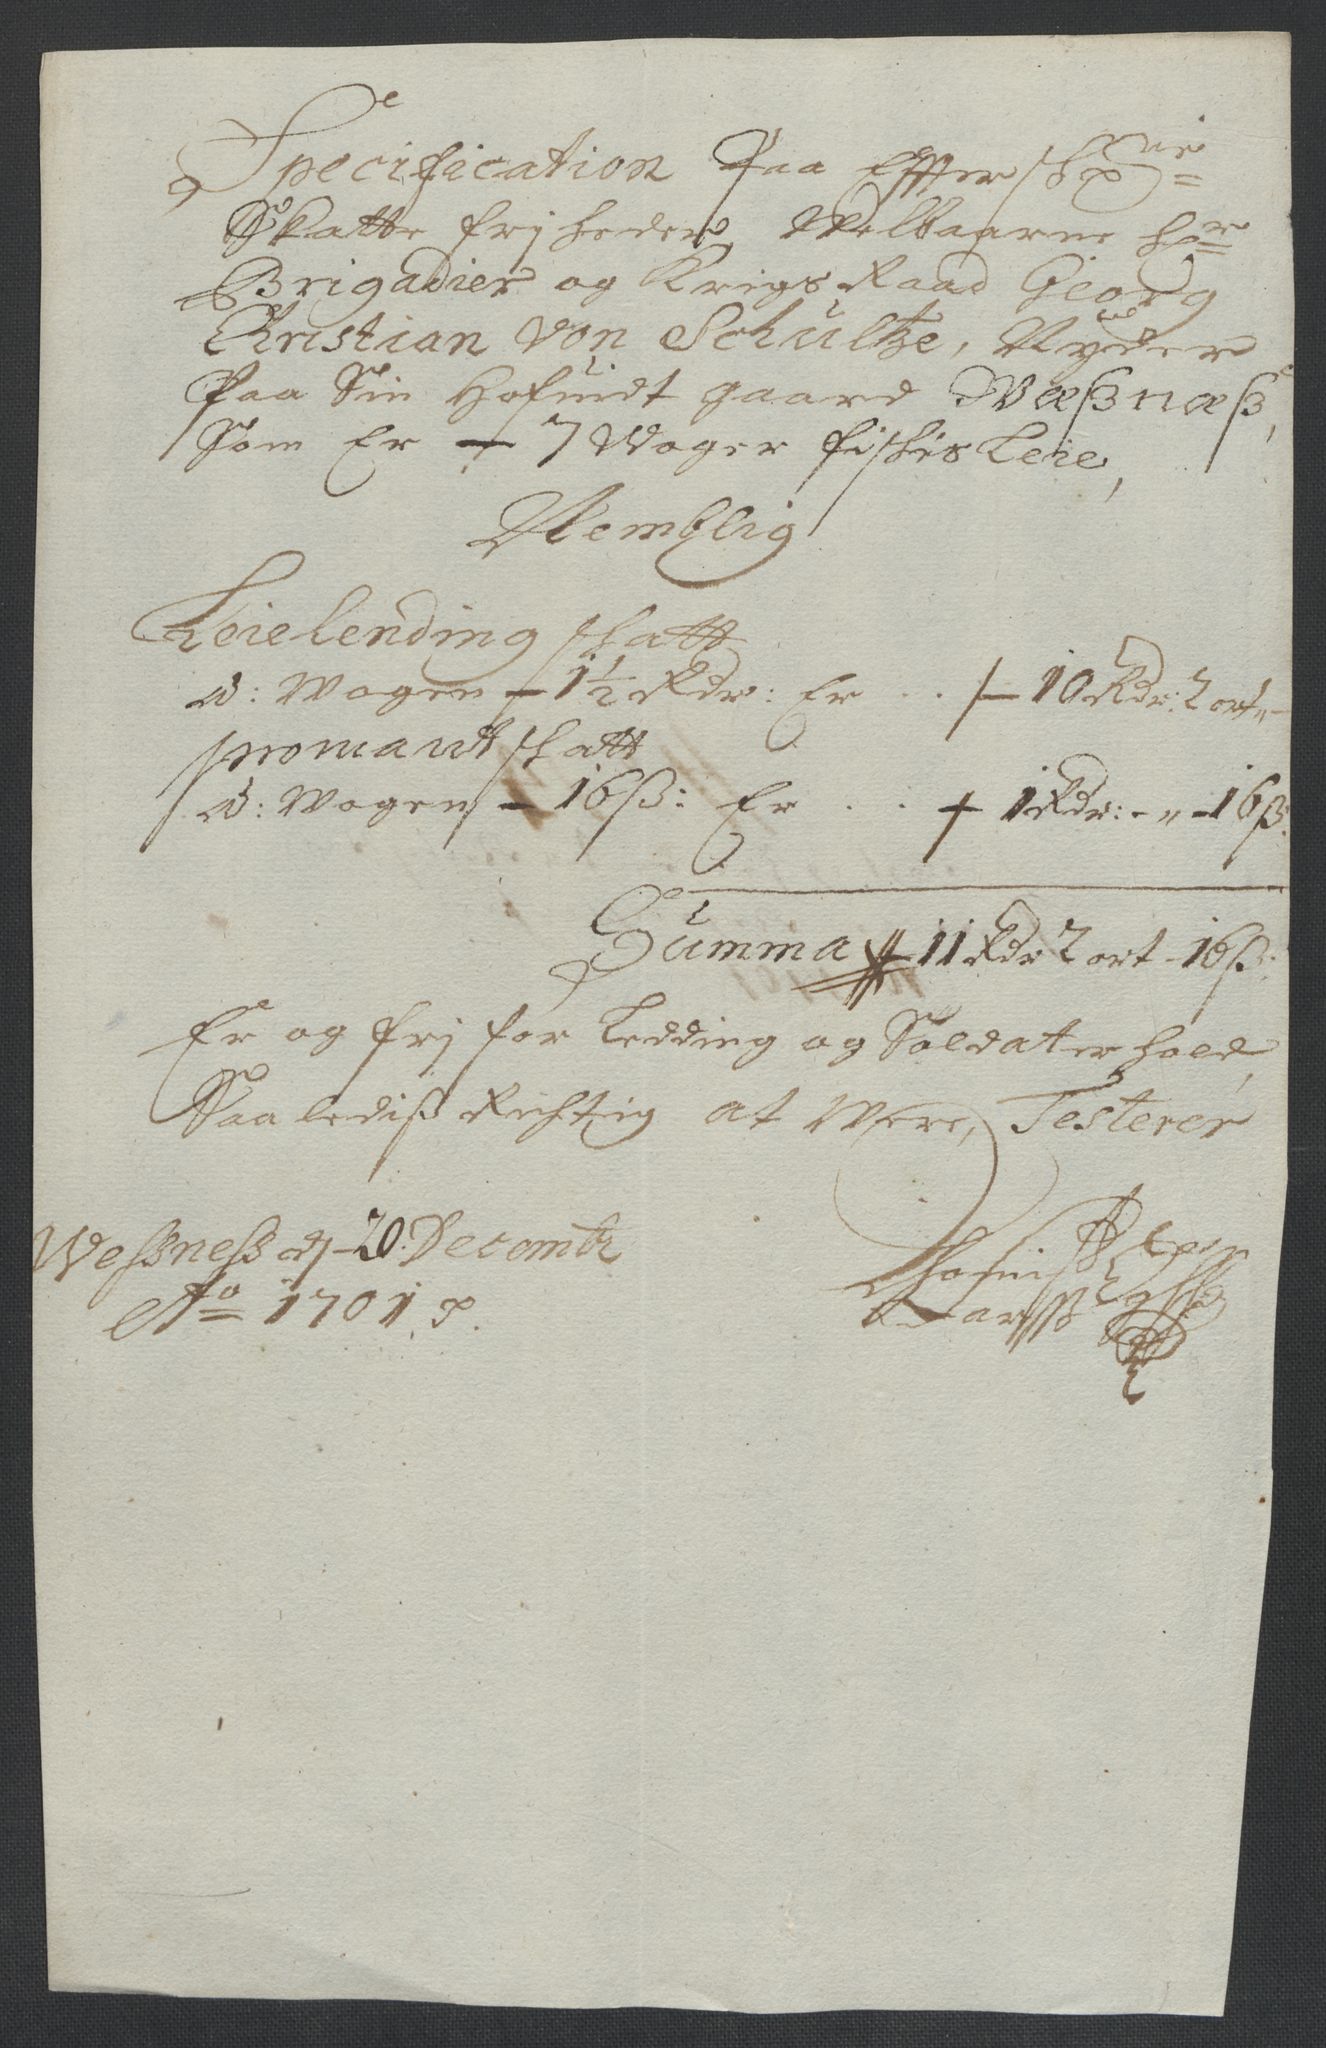 Specification Paa Effterschr:ne
Skatte frjheder, Welbaarne Hr:
Brigadier og Krigs Raad Georg
Christian Von Schultze, Nyder
Paa Sin Hofuidt gaard Wæßnæß,
Som Er — 7 Woger fischis Leie,
Nemblig
Leielending schatt
a: Wogen — 1½ Rdr: Er . . /— 10 Rdr: 2 ort „—
promant schatt
a: Wogen — 16 ß: Er . . . + 1 Rdr: - „ - 16 ß:
Summa 11 Rdr 2 ort - 16 ß:
Er og frj for Ledding og Soldaterhold,
Saalediß Richtig at Were, Testerer
Weßneß dj 20. Decembr
Ao 1701 p.
Larsß